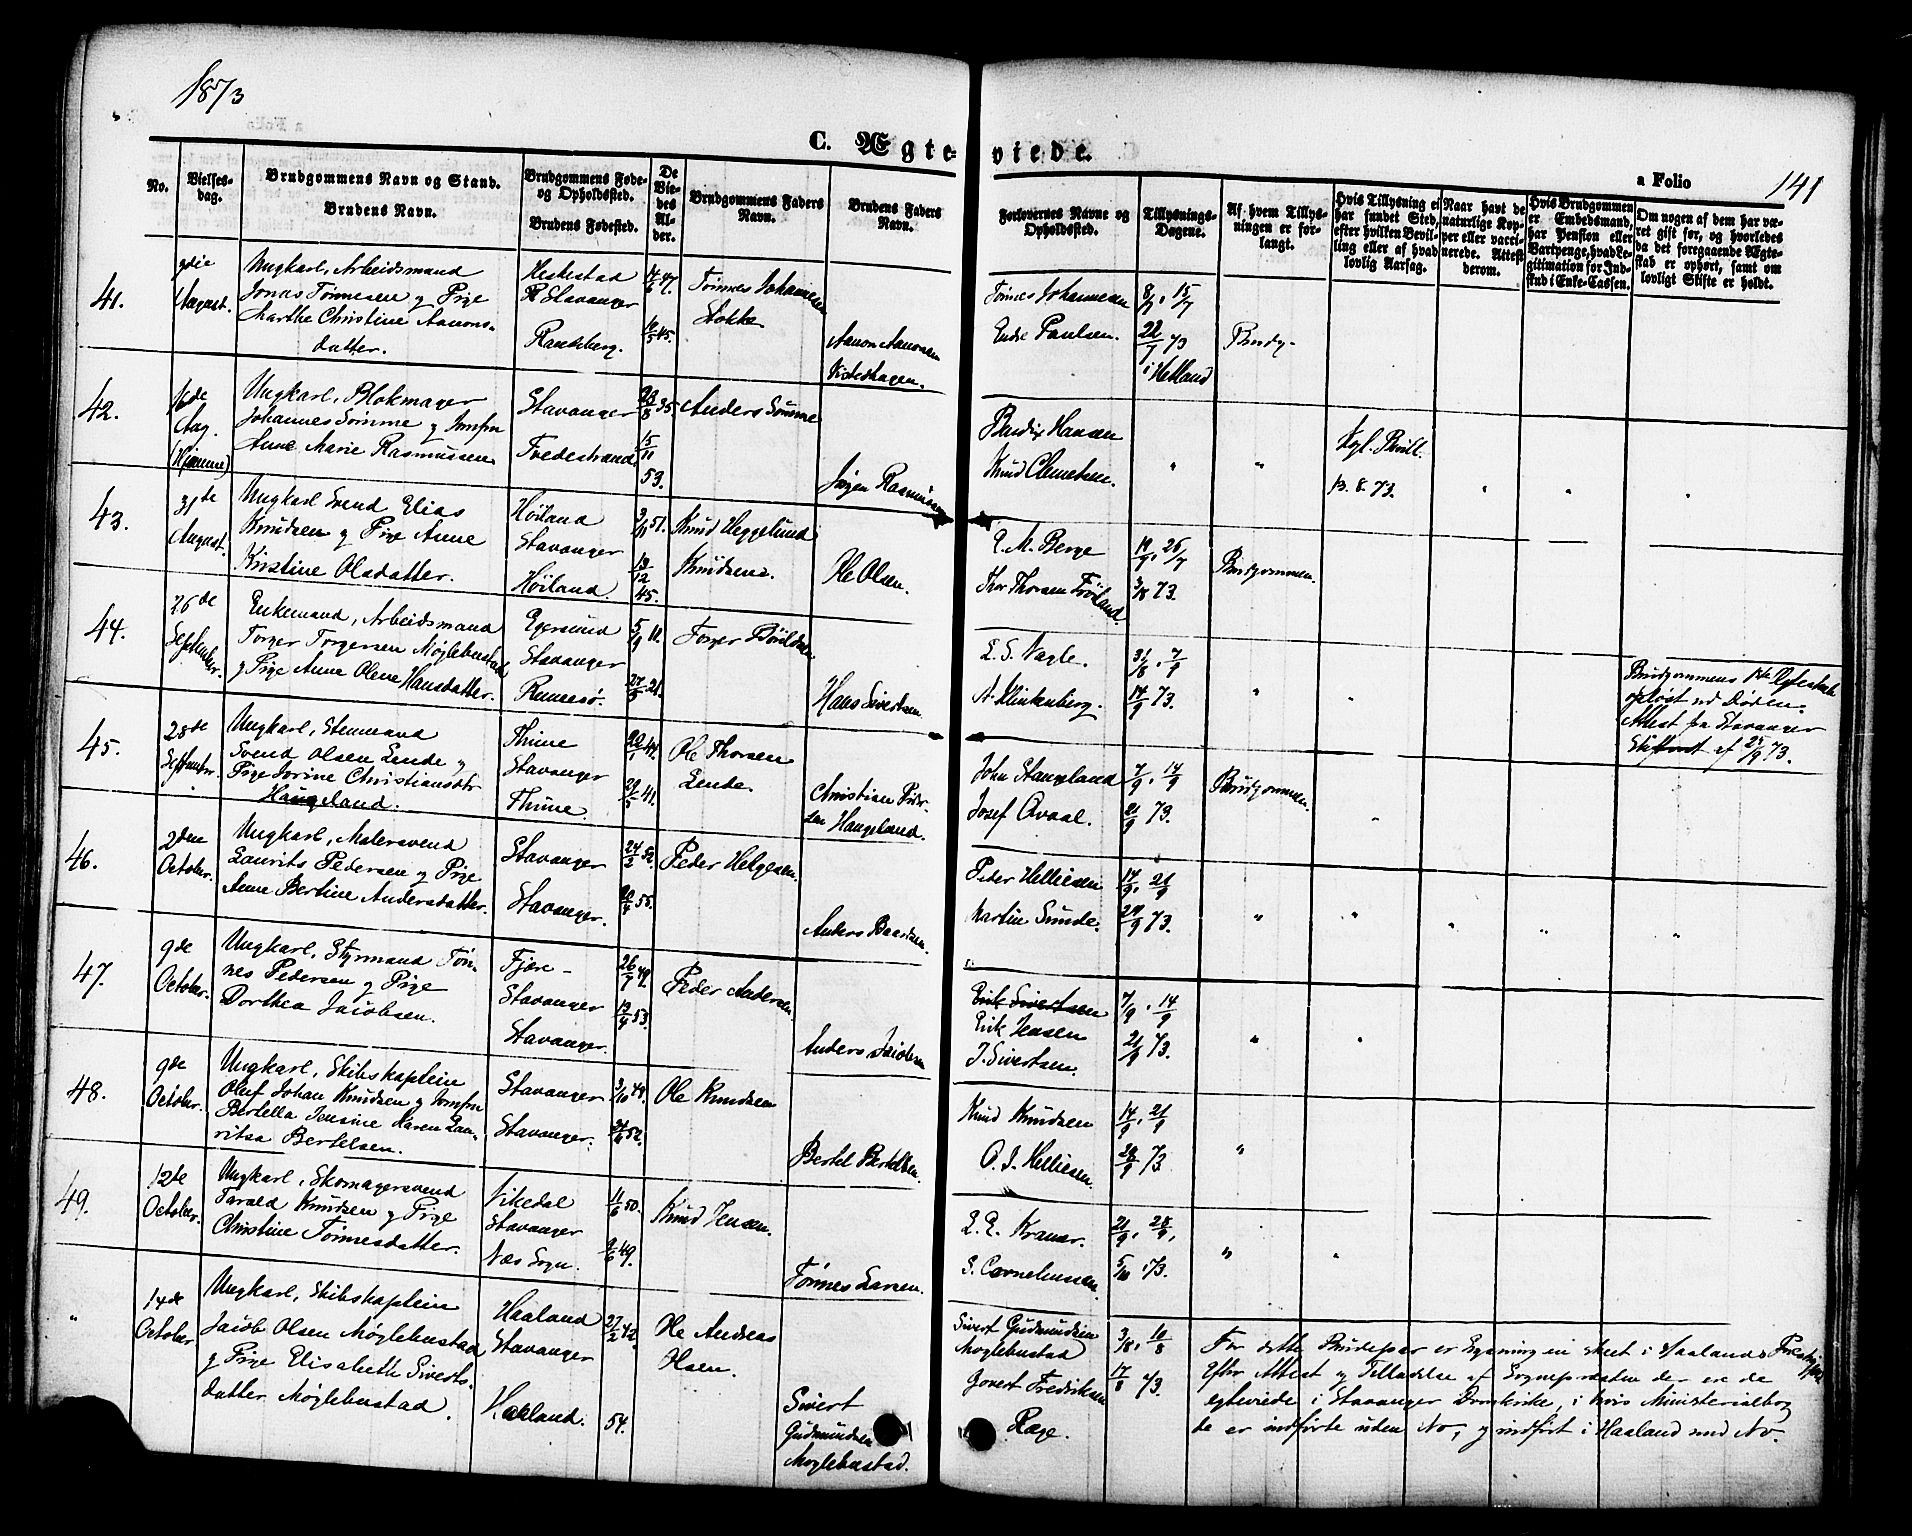 1873
C. Ægteviede.
a Folio 141
No.
Vielses-
dag.
Brudgommens Navn og Stand.
Brudens Navn.
Brudgommens Føde-
og Opholdssted.
Brudens Fødested.
De
Vie-
des
Al-
der.
Brudgommens Faders
Navn.
Brudens Faders
Navn.
Forlovernes Navne og
Opholdssted.
Tillysnings-
Dagene.
Af hvem Tillys-
ningen er for-
langt.
Hvis Tillysning ei
har fundet Sted,
efter hvilken Bevil-
ling eller af hvad
lovlig Aarsag.
Naar havt de
naturlige Kop-
per eller vacci-
nerede. Attest
derom.
Hvis Brudgommen
er Embedsmand,
har Pension eller
Vartpenge, hvad Le-
gitimation for Ind-
skud i Enke-Cassen.
Om nogen af dem har væ-
ret gift før, og hvorledes
da det foregaaende Ægte-
skab er ophørt, samt om
lovligt Skifte er holdt.
41.
August.
Ungkarl, Arbeidsmand
Jonas Tönnesen og Pige
Marthe Christine Aanons-
datter.
Hetlestad
Stavanger
Randeberg.
Tönnes Johannesen
Stokke
Aanon Aanonsen
Tönnes Johannesen
Endre Paulsen.
8/7, 15/7
22/7 73
i Hetland
Brudg.
42.
16de
Aug.
(Hjemme)
Ungkarl, Blokmager
Johannes Sömme og Jomfru
Anne Marie Rasmussen
Stavanger
Tvedestrand
23/8 35
15/11
53.
Anders Sömme
Jörgen Rasmussen
Bendix Hansen
Knud Clemetsen.
"
"
Kgl. Bevill.
13. 8. 73.
"
"
"
43.
31de
August.
Ungkarl Svend Elias
Knudsen og Pige Anne
Kristine Olsdatter.
Höiland
Stavanger
Höiland.
51.
12
45.
Knud Heggelund
Knudsen.
Ole Olsen.
E. M. Berge
Thor Thorsen Fröiland
3/8 73.
Brudgommen.
44.
26de
September.
Enkemand, Arbeidsmand
Torger Torgersen Möglebustad
og Pige Anne Olene Hansdatter.
Egersund
Stavanger
Rennesö.
Torger
Hans Sivertsen
L. S. Nagle.
A. Klinkenberg.
31/8, 7/9
14/9 73.
"
"
Brudgommens 1ste Ægteskab
oplöst ved Döden.
Attest fra Stavanger
Skifteret af 25/9 73.
45.
28de
September
Ungkarl, Stenmand
Svend Olsen Lende og
Pige Jorine Christiansdtr
Haugeland.
Thime
Stavanger
Thime.
44.
41.
Ole Thorsen
Lende.
Christian Peder-
sen Haugeland.
John Stangeland
Josef Qvaal.
7/9, 14/9
21/9 73.
Brudgommen.
"
46.
2den
October.
Ungkarl, Malersvend
Laurits Pedersen og Pige
Anne Bertine Andersdatter.
Stavanger
Stavanger.
52.
55.
Peder Helgesen.
Anders Baardsen.
Peder Helliesen
Martin Sunde.
14/9, 21/9
73.
"
"
"
"
"
47.
9de
October.
Ungkarl, Styrmand Tön-
nes Pedersen og Pige
Dorthea Jacobsen.
Fjære -
Stavanger
Stavanger.
26/7 49.
53.
Peder Andersen.
Anders Jacobsen
Erik Sivertsen
Erik Jensen
J. Sivertsen.
7/9, 14/9
21/9 73.
"
"
48.
9de
October.
Ungkarl, Skibskaptein
Oluf Johan Knudsen og Jomfru
Bertella Jensine Karen Lau-
ritsa Bertelsen.
Stavanger
Stavanger.
3/10 48.
52.
Ole Knudsen
Bertel Bertelsen
Knud Knudsen
O. J. Helliesen
14/9, 21/9
28/9 73.
"
49.
12te
October.
Ungkarl, Skomagersvend
Tarald Knudsen og Pige
Christine Tönnesdatter.
Vikedal
Stavanger
Næs Sogn.
11/6 50.
49.
Knud Jensen.
Tönnes Larsen.
L. E. Kramer.
S. Cornelinssen.
21/9, 28/9,
5/10 73.
"
"
"
14de
October
Ungkarl, Skibskaptein
Jacob Olsen Möglebustad
og Pige Elisabeth Siverts-
datter Möglebustad.
Haaland
Stavanger
Haaland.
27/2 42.
54.
Ole Andreas
Olsen.
Sivert
Gudmundsen
Möglebustad.
Sivert Gudmundsen
Moglebustad
Govert Fredriksen
Rage.
3/8, 10/8
17/8 73.
For dette Brudepar er Lysning en skeet i Haalands Præstegjeld
Efter Attest og Tilladelse af Sognepræsten der ere de
egteviede i Stavanger Domkirke, i hvis Ministerialbog
de er indförte uden No, og indfört i Haaland med No.